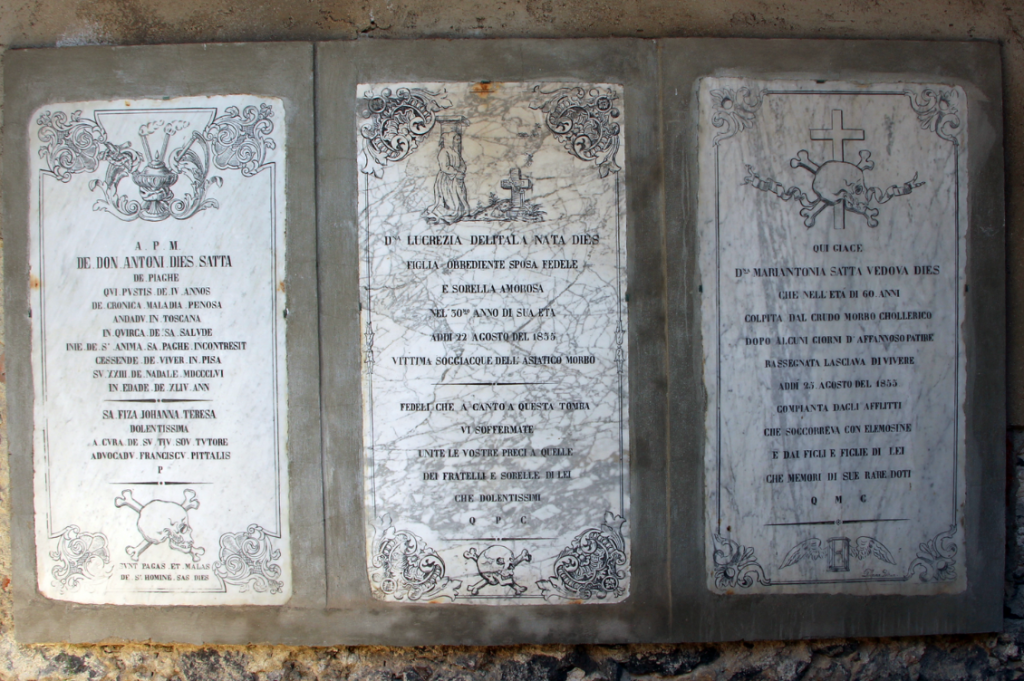 A P M
DE DON ANTONI DIES SATTA
DE PIAGHE
QVI PVSTIS DE IV ANNOS
DE CRONICA MALADIA PENOSA
ANDADV IN TOSCANA
IN QVIRCA DE SA SALVDE
INIE DE S' ANIMA SA PAGHE INCONTRESIT
CESSENDE DE VIVER IN PISA
SV XXIII DE NADALE MDCCCLVI
IN EDADE DE XLIV ANN
SA FIZA JOHANNA TERESA
DOLENTISSIMA
A CVRA DE SV TIV SOV TVTORE
ADVOCADV FRANCISCV PITTALIS
P
PAGAS ET MALAS
DE S' HOMINE SAS DIES
D.NA LUCREZIA DELITALA NATA DIES
FIGLIA OBREDIENTE SPOSA FEDELE
E SORELLA AMOROSA
NEL 30.MO ANNO DI SUA ETÀ
ADDI 22 AGOSTO DEL 1855
VITTIMA SOGGIACQUE DELL' ASIATICO MORBO
FEDELI CHE A CANTO A QUESTA TOMBA
VI SOFFERMATE
UNITE LE VOSTRE PRECI A QUELLE
DEI FRATELLI E SORELLE DI LEI
CHE DOLENTISSIMI
Q P C
QUI GIACE
D.NA MARIANTONIA SATTA VEDOVA DIES
CHE NELL' ETÀ DI 60 ANNI
COLPITA DAL CRUDO MORBO CHOLLERICO
DOPO ALCUNI GIORNI D' AFFANNOSO PATIRE
RASSEGNATA LASCIAVA DI VIVERE
ADDI 25 AGOSTO DEL 1855
COMPIANTA DAGLI AFFLITTI
CHE SOCCORREVA CON ELEMOSINE
E DAI FIGLI E FIGLIE DI LEI
CHE MEMORI DI SUE RARE DOTI
Q M C